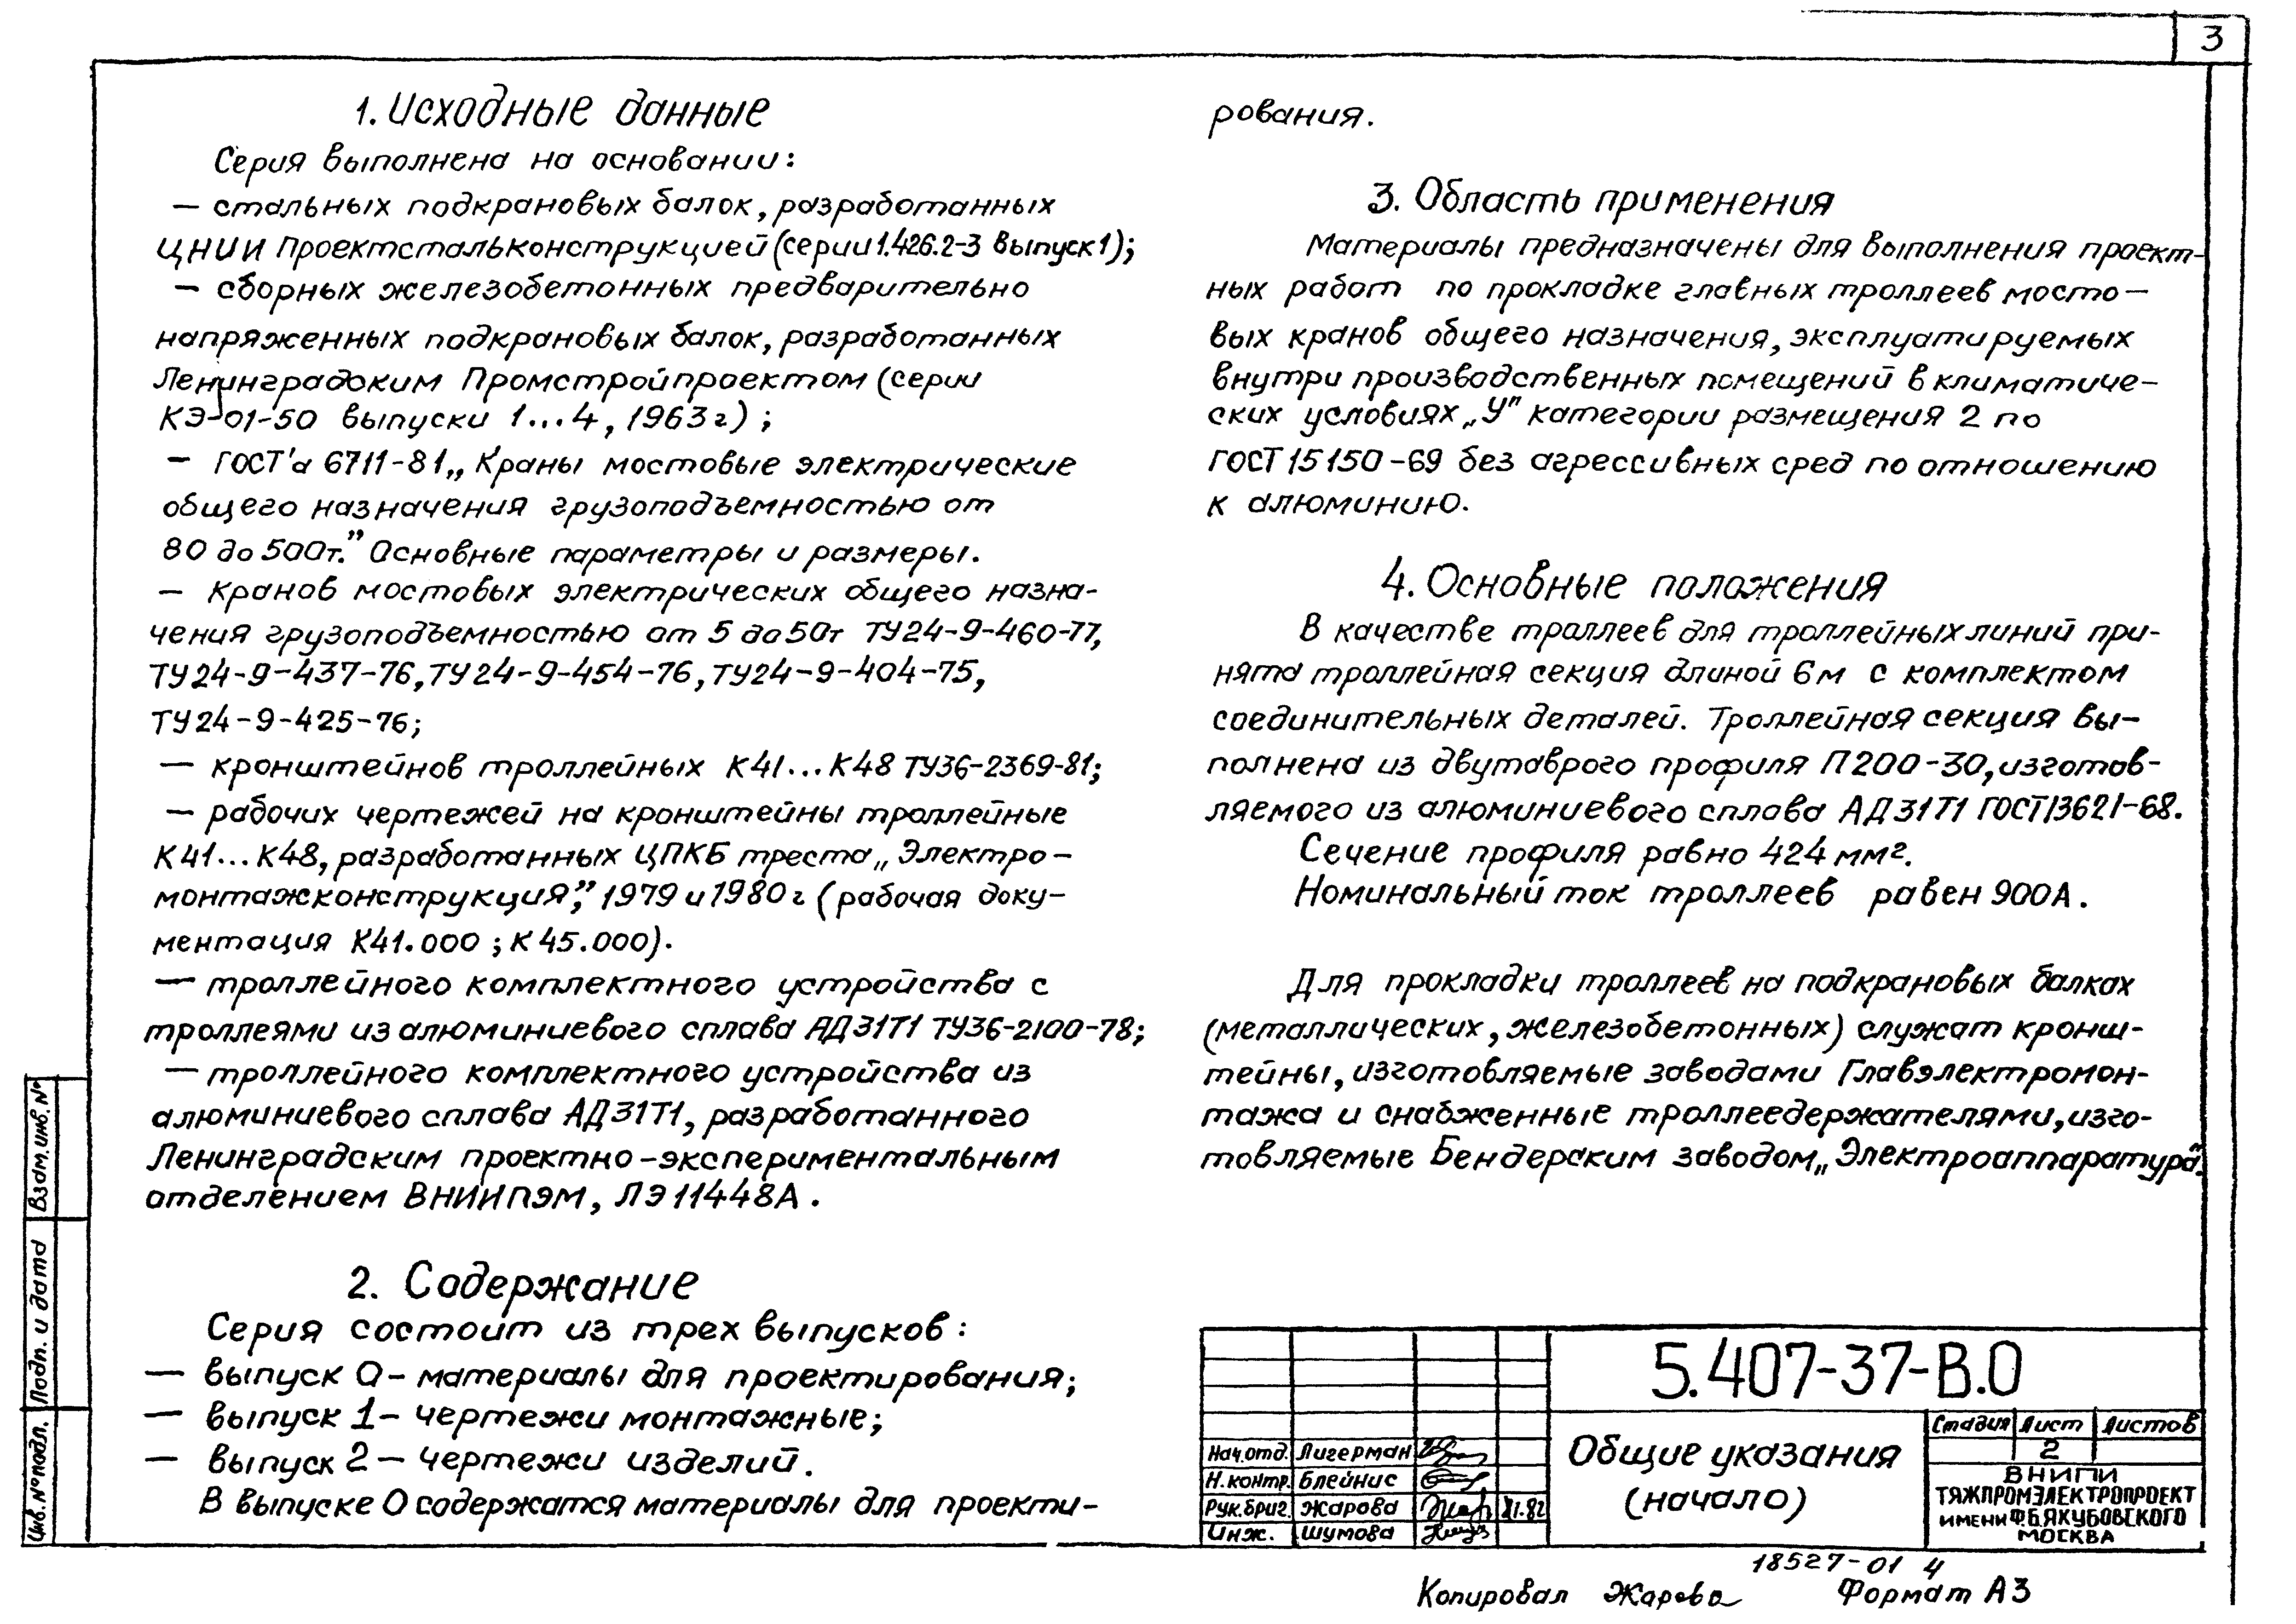 3
1. Исходные данные
Серия выполнена на основании:
— стальных подкрановых балок, разработанных
ЦНИИ Проектстальконструкцией (серии 1.426.2-3 выпуск 1);
— сборных железобетонных предварительно
напряженных подкрановых балок, разработанных
Ленинградским Промстройпроектом (серии
КЭ-01-50 выпуски 1...4, 1963г);
— ГОСТ'а 6711-81 „Краны мостовые электрические
общего назначения грузоподъемностью от
80 до 500т." Основные параметры и размеры.
— кранов мостовых электрических общего назна-
чения грузоподъемностью от 5 до 50т ТУ24-9-460-77,
ТУ24-9-437-76, ТУ24-9-454-76, ТУ24-9-404-75,
ТУ24-9-425-76;
— кронштейнов троллейных К41...К48 ТУ36-2369-81;
— рабочих чертежей на кронштейны троллейные
К41...К48, разработанных ЦПКБ треста „Электро-
монтажконструкция", 1979 и 1980г (рабочая доку-
ментация К41.000; К45.000).
— троллейного комплектного устройства с
троллеями из алюминиевого сплава АД31Т1 ТУ36-2100-78;
— троллейного комплектного устройства из
алюминиевого сплава АД31Т1, разработанного
Ленинградским проектно-экспериментальным
отделением ВНИИПЭМ, ЛЭ11448А.
2. Содержание
Серия состоит из трех выпусков:
— выпуск 0 - материалы для проектирования;
— выпуск 1 - чертежи монтажные;
— выпуск 2 — чертежи изделий.
В выпуске 0 содержатся материалы для проекти-
рования.
3. Область применения
Материалы предназначены для выполнения проект-
ных работ по прокладке главных троллеев мосто-
вых кранов общего назначения, эксплуатируемых
внутри производственных помещений в климатиче-
ских условиях „У" категории размещения 2 по
ГОСТ 15150-69 без агрессивных сред по отношению
к алюминию.
4. Основные положения
В качестве троллеев для троллейных линий при-
нята троллейная секция длиной 6м с комплектом
соединительных деталей. Троллейная секция вы-
полнена из двутаврого профиля П200-30, изготов-
ляемого из алюминиевого сплава АД31Т1 ГОСТ 13621-68.
Сечение профиля равно 424 мм².
Номинальный ток троллеев равен 900А.
Для прокладки троллеев на подкрановых балках
(металлических, железобетонных) служат кронш-
тейны, изготовляемые заводами Главэлектромон-
тажа и снабженные троллеедержателями, изго-
товляемые Бендерским заводом „Электроаппаратура".
5.407-37-В.0
Общие указания
(начало)
Стадия Лист Листов
2
ВНИПИ
ТЯЖПРОМЭЛЕКТРОПРОЕКТ
ИМЕНИ Ф.Б.ЯКУБОВСКОГО
МОСКВА
Нач.отд. Лигерман
Н.контр. Блейнис
Рук.бриг. Жарова XI.82
Инж. Шумова
18527-01 4
Копировал Жарова Формат А3
Взам.инв.№
Подп. и дата
Инв.№подл.